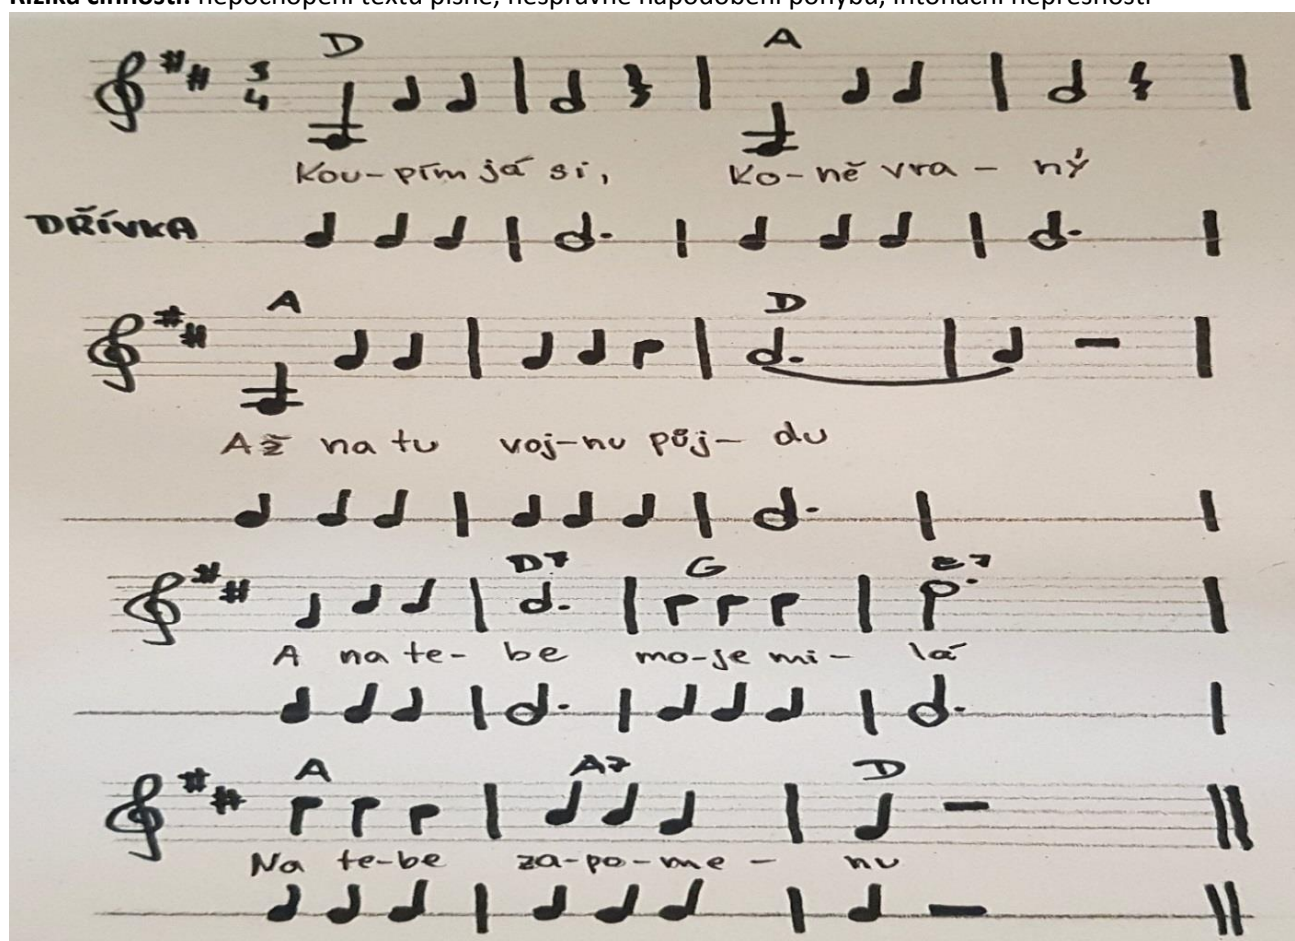 Rizika činnosti: nepochopení textu písně, nesprávné napodobení pohybu, intonační nepřesnosti
D A
3
4
Kou-pím já si, Ko-ně vra-ný
DŘÍVKA
A D
Až na tu voj-nu půj-du
D7 G E7
A na te-be mo-je mi-lá
A A7 D
Na te-be za-po-me-nu